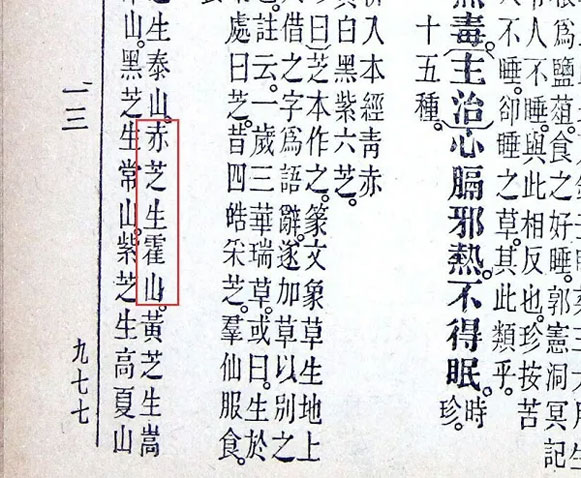 爲鹽菹。食之好睡。郭憲洞冥記
人不睡。與此相反也。珍按苦
人不睡。卻睡之草。其此類乎。
毒。〔主治〕心膈邪熱。不得眠。時珍。
十五種。
入本經青赤
白黑紫六芝。
曰〕芝本作之。篆文象草生地上
借之字爲語辭。遂加草以別之
註云。一歲三華瑞草。或曰。生於
處曰芝。昔四皓采芝。羣仙服食。
芝生泰山。赤芝生霍山。黃芝生嵩
山。黑芝生常山。紫芝生高夏山
一三
九七七